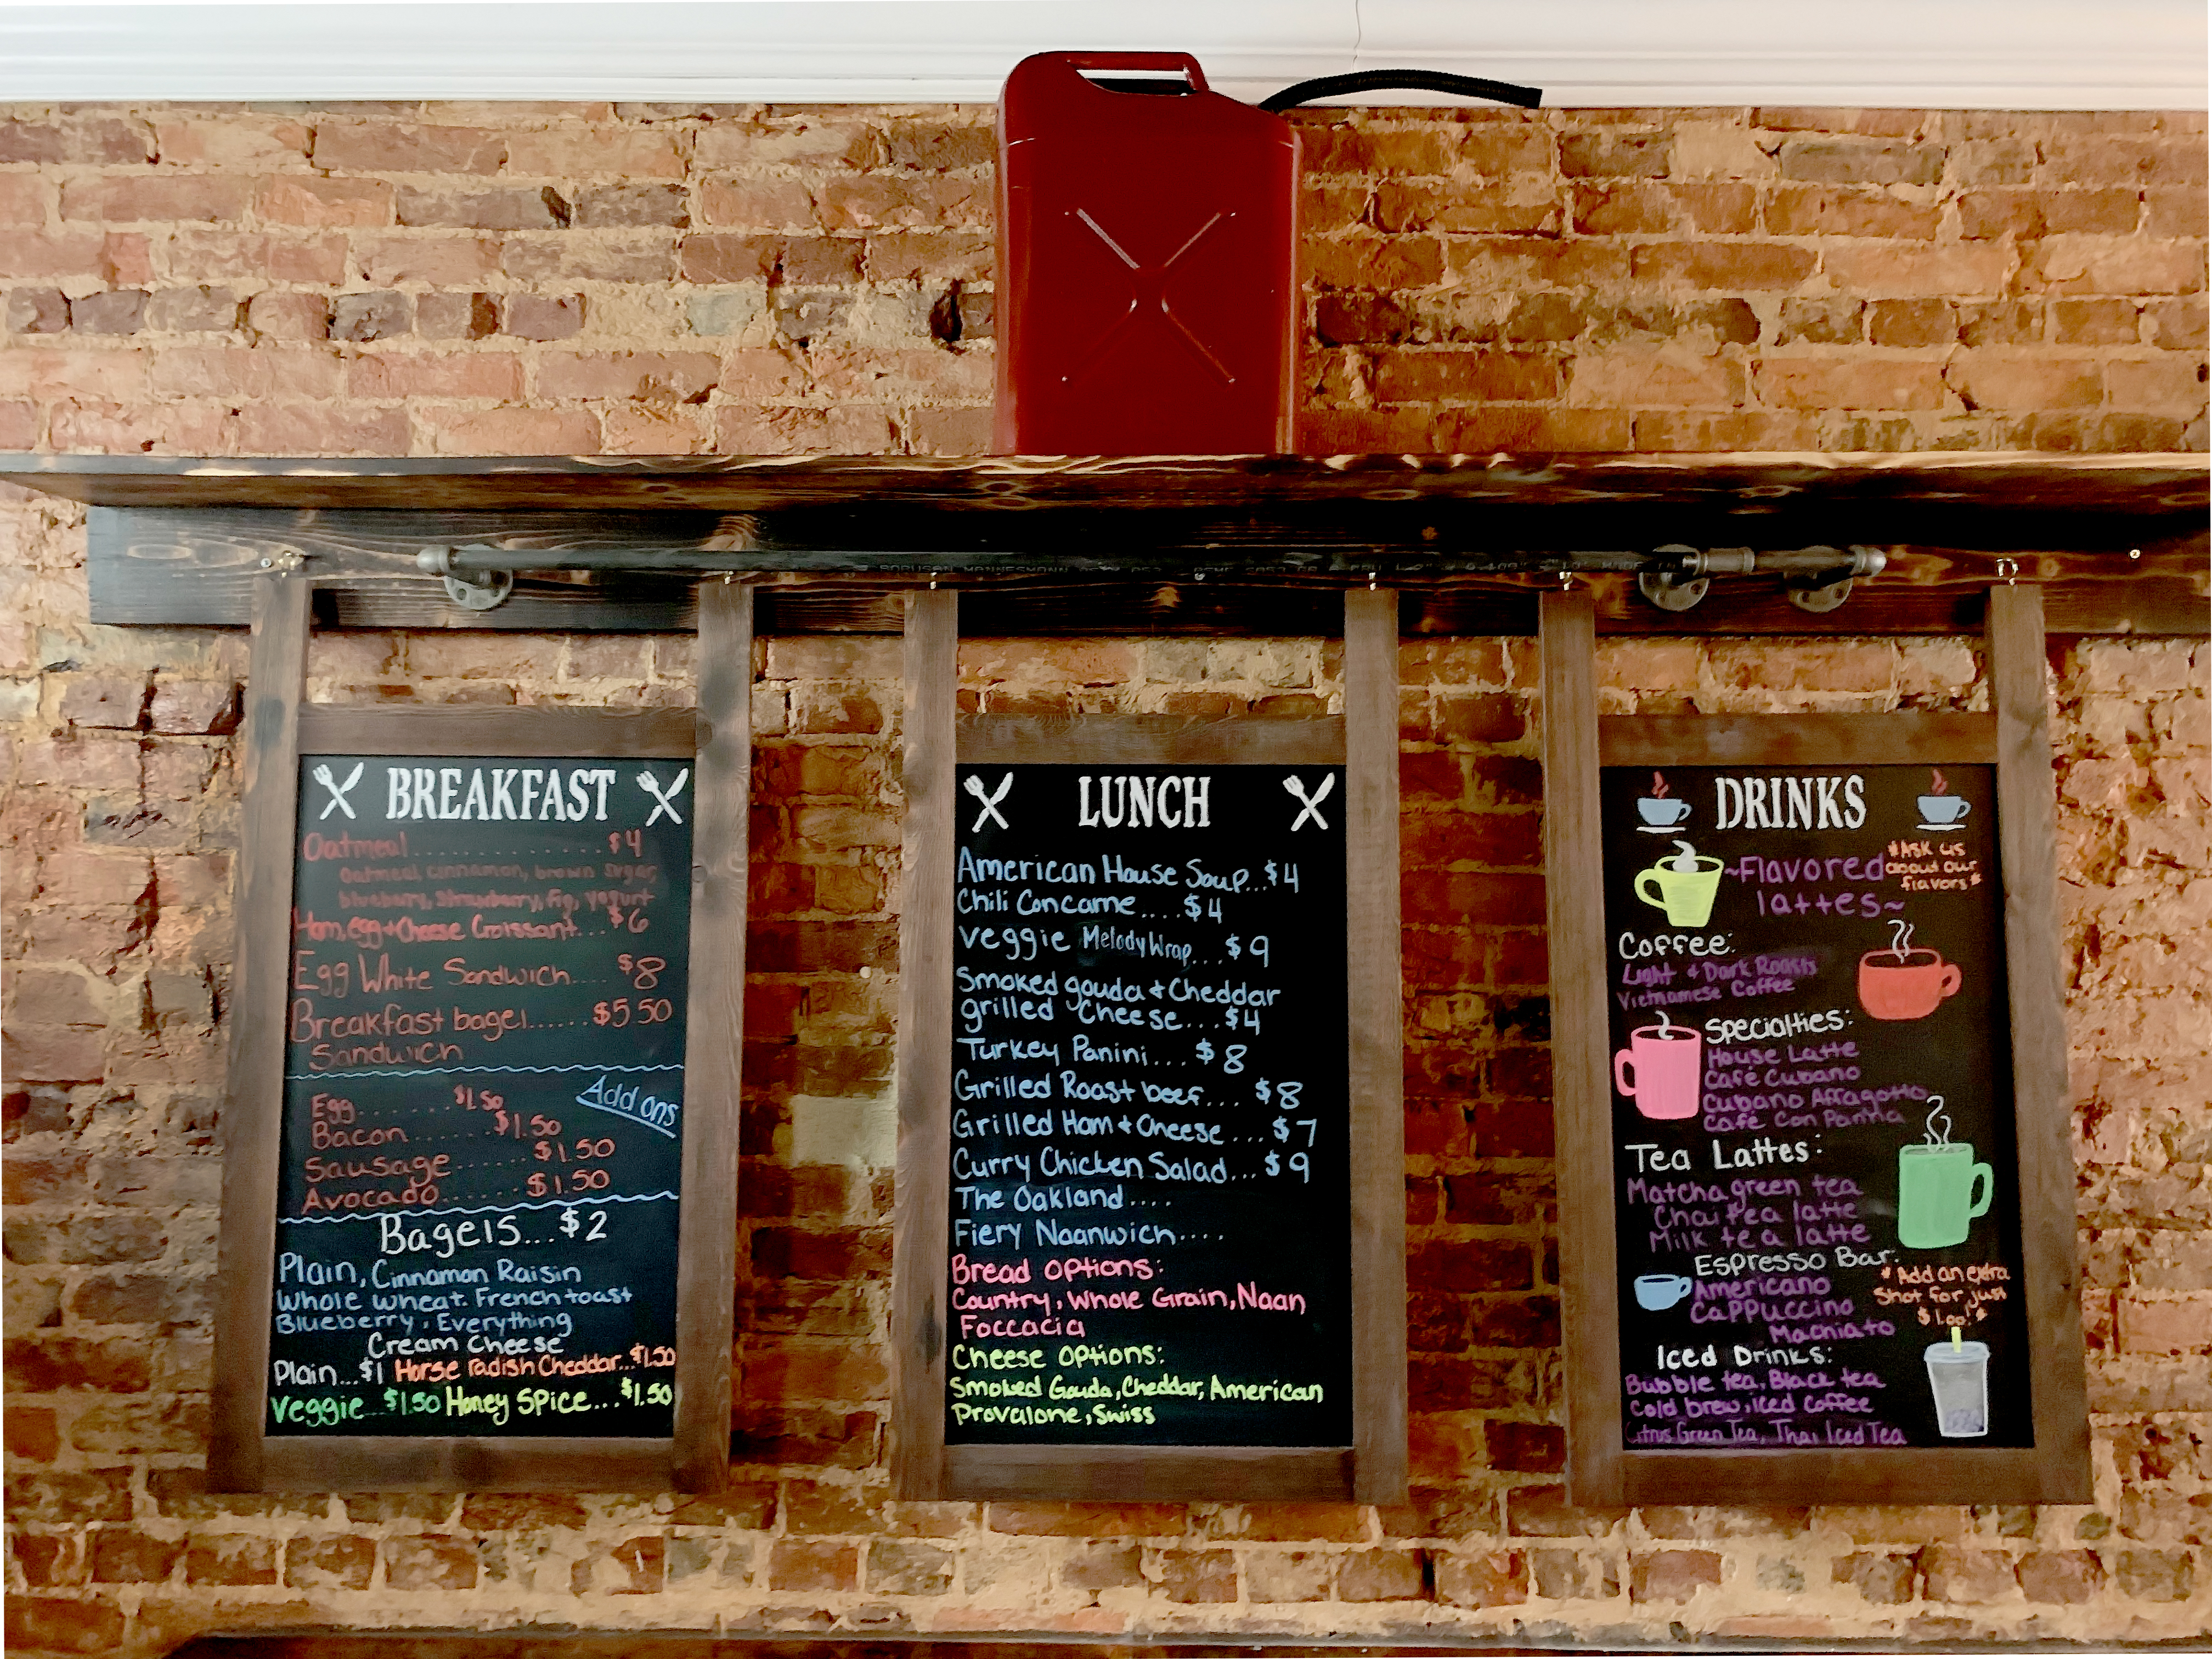 BREAKFAST
Oatmeal.............$4
Oatmeal, cinnamon, brown sugar,
blueberry, strawberry, fig, yogurt
Ham, egg + Cheese Croissant...$6
Egg White Sandwich....$8
Breakfast bagel......$5.50
Sandwich
Add ons
Egg........$1.50
Bacon.......$1.50
Sausage.......$1.50
Avocado.......$1.50
Bagels...$2
Plain, Cinnamon Raisin
Whole wheat. French toast
Blueberry, Everything
Cream Cheese
Plain...$1 Horse Radish Cheddar...$1.50
Veggie...$1.50 Honey Spice...$1.50
LUNCH
American House Soup...$4
Chili Concarne....$4
Veggie Melody Wrap...$9
Smoked gouda + Cheddar
grilled Cheese...$4
Turkey Panini...$8
Grilled Roast beef...$8
Grilled Ham + Cheese...$7
Curry Chicken Salad...$9
The Oakland....
Fiery Naanwich....
Bread Options:
Country, Whole Grain, Naan
Foccacia
Cheese Options:
Smoked Gouda, Cheddar, American
Provalone, Swiss
DRINKS
~Flavored
lattes~
*Ask us
about our
flavors*
Coffee:
Light + Dark Roasts
Vietnamese Coffee
Specialties:
House Latte
Café Cubano
Cubano Affagotto
Café Con Panna
Tea Lattes:
Matcha green tea
Chai tea latte
Milk tea latte
Espresso Bar:
Americano
Cappuccino
Machiato
*Add an extra
shot for just
$1.00!*
Iced Drinks:
Bubble tea, Black tea
Cold brew, iced coffee
Citrus Green Tea, Thai Iced Tea